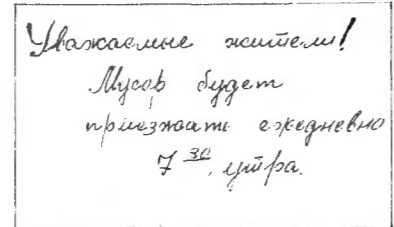 Уважаемые жители!
Мусор будет
приезжать ежедневно
7 30 утра.